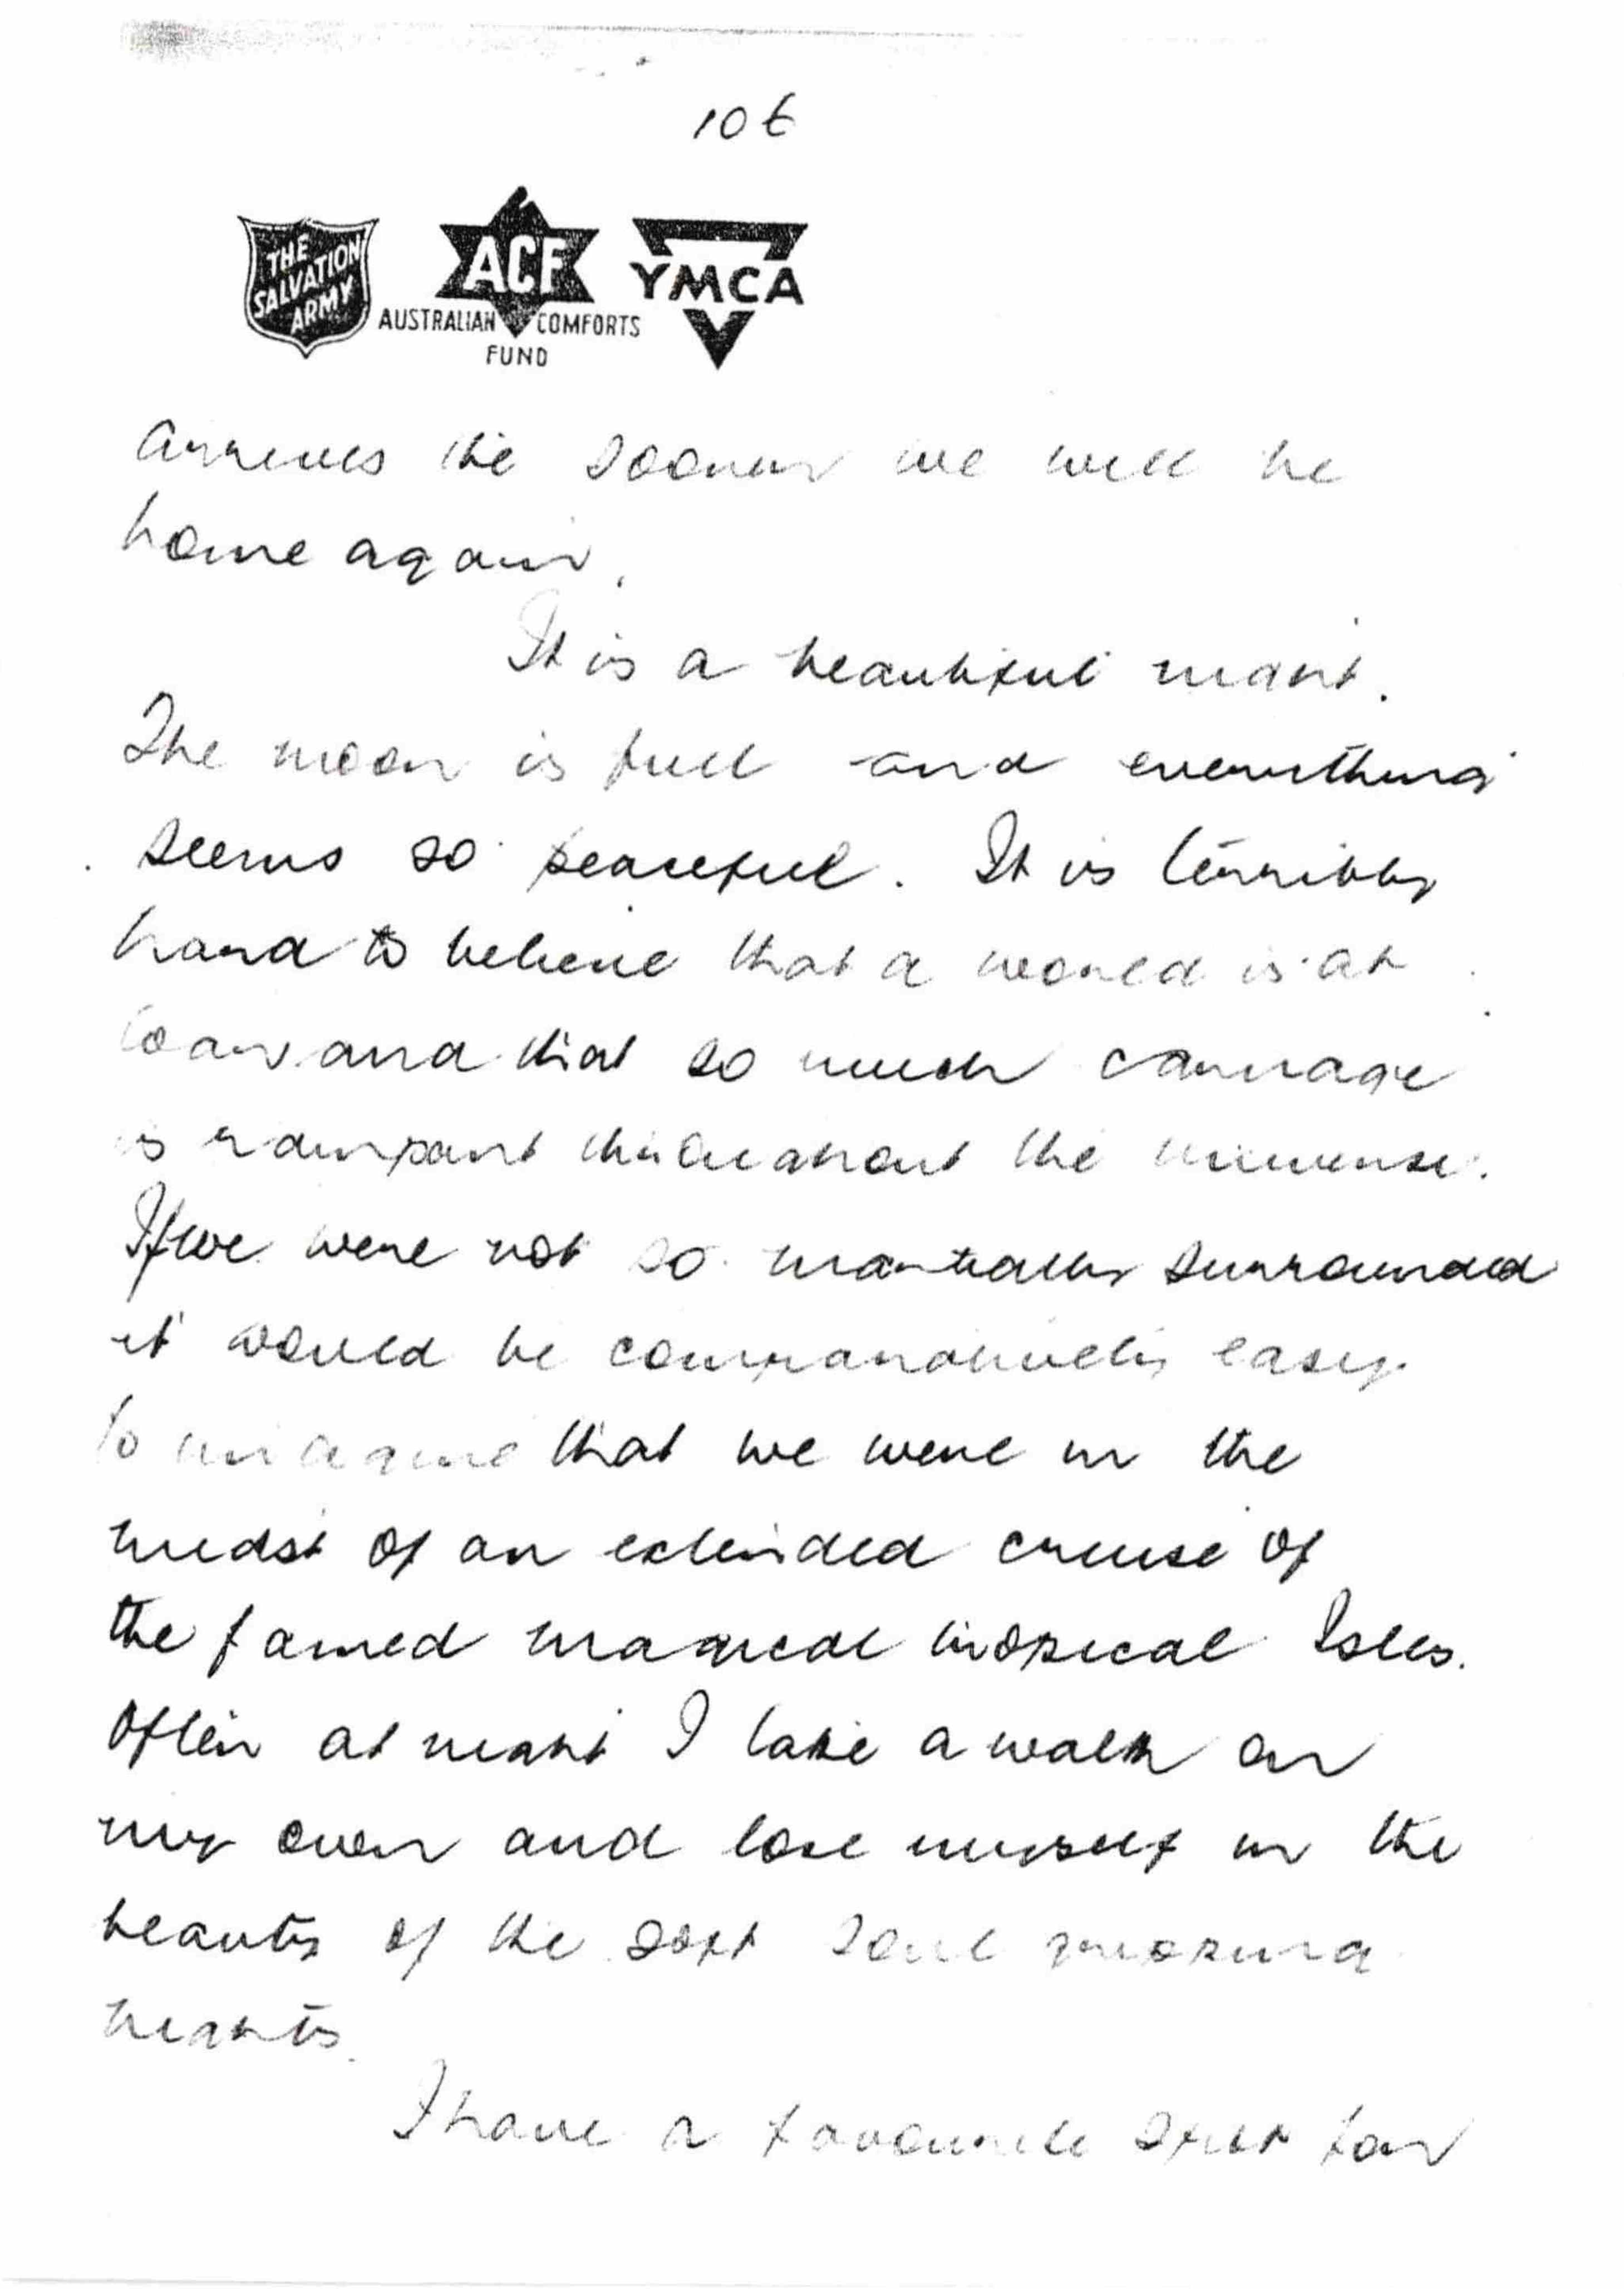 106
THE
SALVATION
ARMY
ACF
AUSTRALIAN COMFORTS
FUND
YMCA
arrives the sooner we will be
home again.
It is a beautiful night.
The moon is full and everything
seems so peaceful. It is terribly
hard to believe that a world is at
war and that so much carnage
is rampant throughout the universe.
If we were not so martially surrounded
it would be comparatively easy
to imagine that we were in the
midst of an extended cruise of
the famed magical tropical Isles.
Often at night I take a walk on
my own and lose myself in the
beauty of the soft soul
nights.
I have a favourite spot for